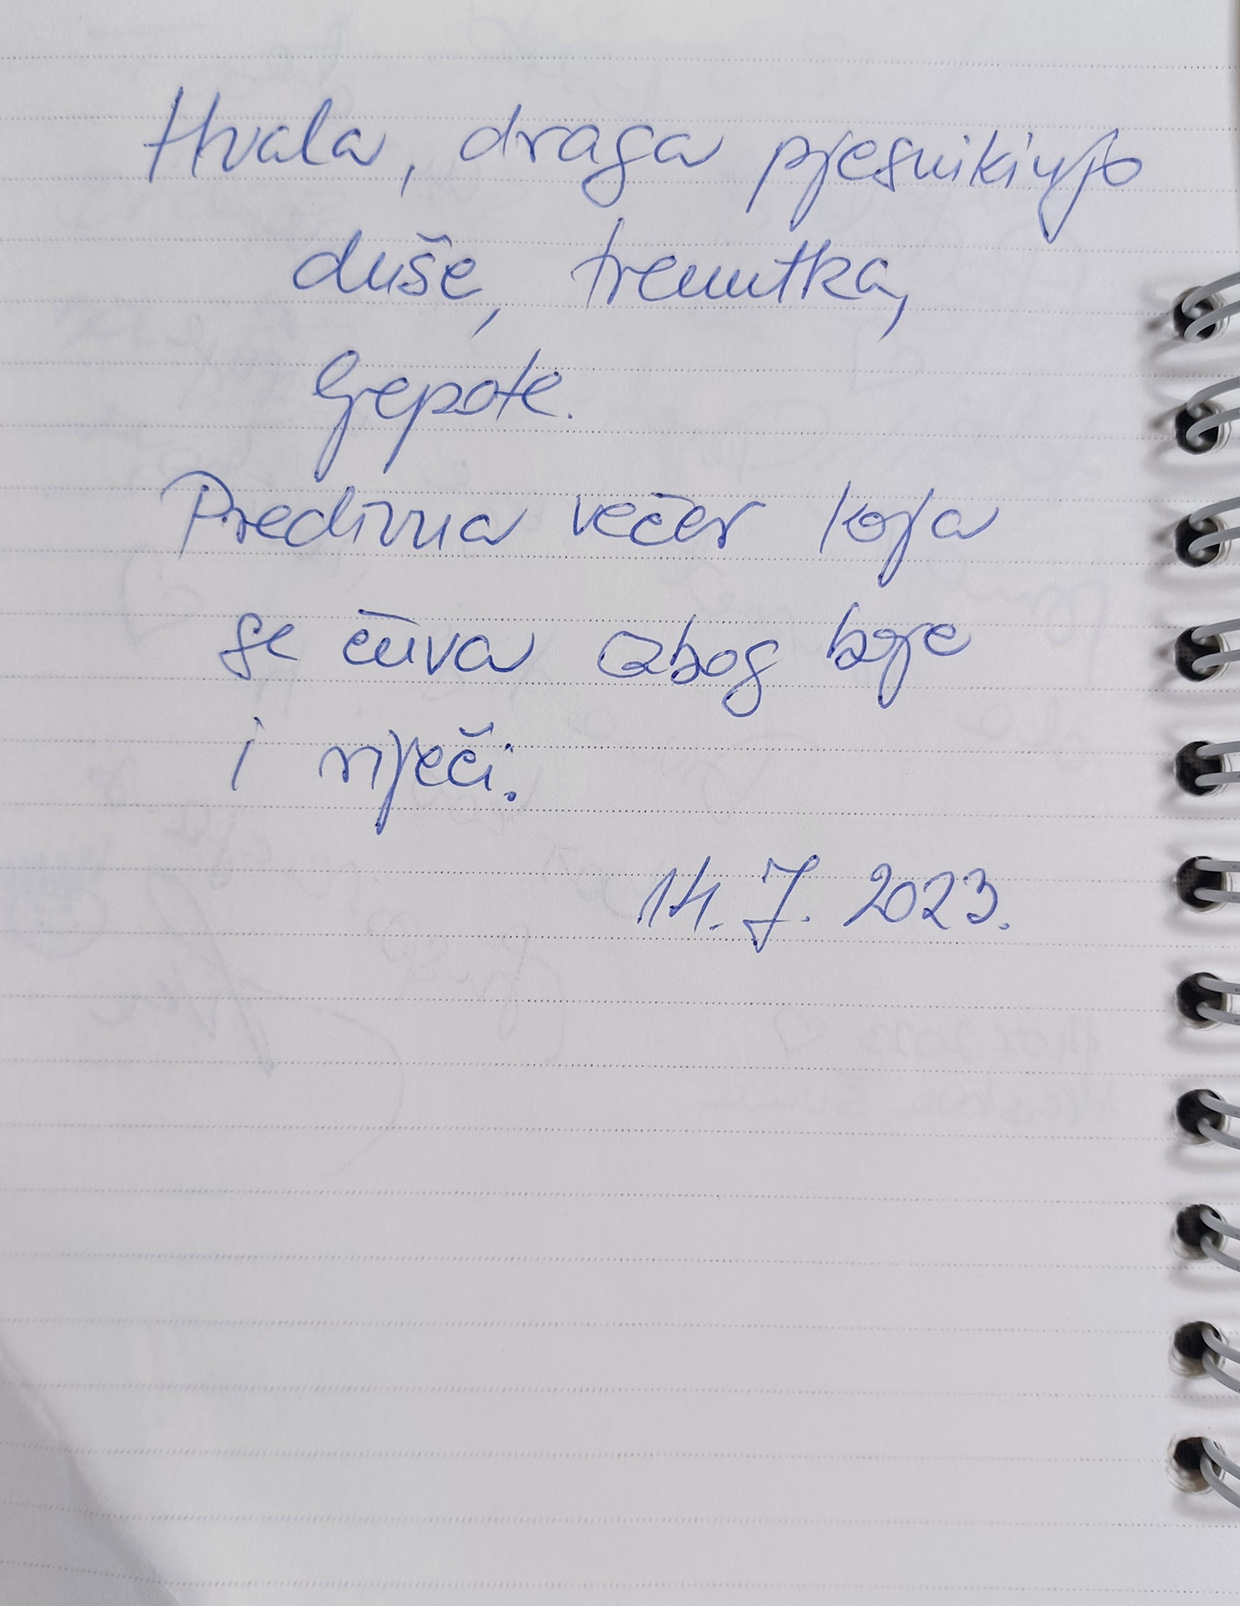 Hvala, draga pjesnikinjo
duše, trenutka,
ljepote.
Predivna večer koja
se čuva zbog boje
i riječi.
14. 7. 2023.